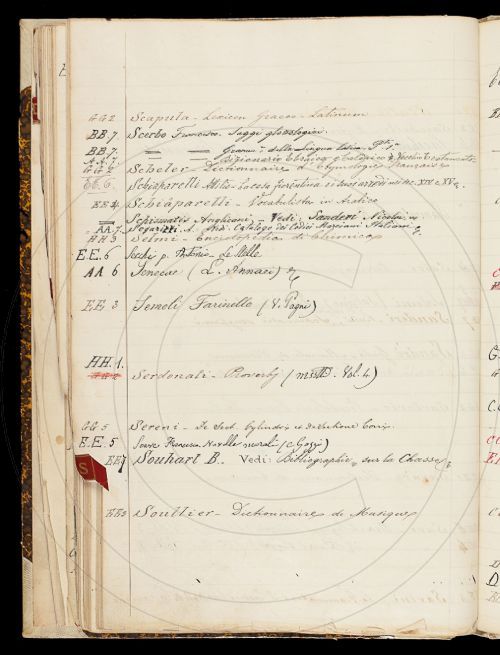 GG 2 Scapula - Lexicon Graeco - Latinum
BB. 7. Scerbo Francesco. Saggi glottologici.
BB. 7. Gramm. della lingua latina. Pte 1a
A.A. 7. Dizionario Ebraico e Caldaico del Vecchio Testamento
Scheler - Dictionnaire d'Etymologie française
EE. 6. Schiaparelli Attilio - La casa fiorentina e i suoi arredi nei sec. XIV e XV.
EE 4 Schiaparelli - Vocabulista in Arabico
Schismatis Anglicani - Vedi: Sanderi Nicolai
AA. 7. Segarizzi A. Catalogo dei Codici Marciani Italiani
HH 3 Selmi - Enciclopedia di Chimica
E.E. 6 Secchi p. Antonio - Le Stelle
AA 6 Senecae (L. Annaei)
EE 3 Semeli Farinello (V. Pagni)
HH. 1.
Serdonati - Proverbj (mss. Vol. 4)
GG 5 Sereni - De Sect. Cylindri et de Sectione Coni
E.E. 5 Soave Francesco Novelle morali (e Gozzi)
EE 7 Souhart B. Vedi: Bibliographie sur la Chasse
S
EE 2 Soullier - Dictionnaire de Musique